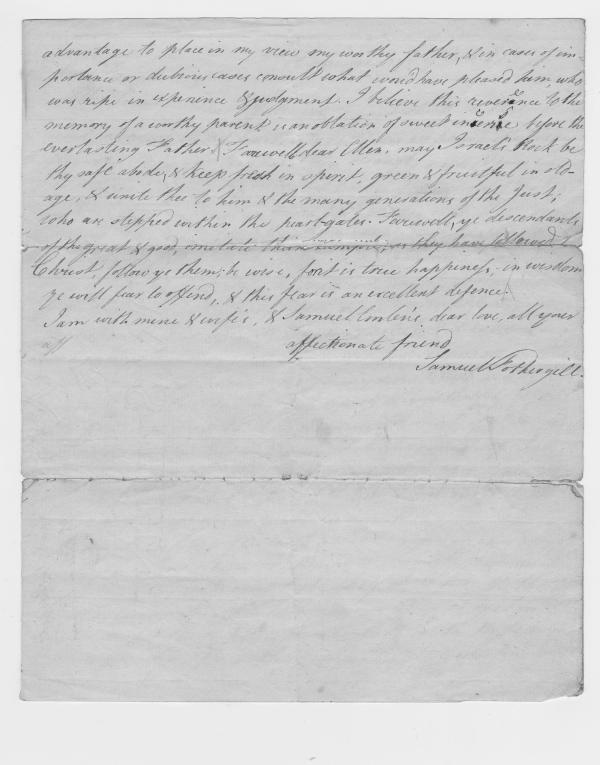 advantage to place in my view my worthy father, & in cases of im-
portance or dubious cases consult what would have pleased him who
was ripe in experience & judgment. I believe this reverence to the
memory of a worthy parent is an oblation of sweet incense before the
everlasting Father. Farewell dear Ellen, may Israel's Rock be
thy safe abode, & keep fresh in spirit, green & fruitful in old-
age, & unite thee to him & the many generations of the Just,
who are stepped within the pearl-gates. Farewell, ye descendants
of the great & good, imitate their example, as they have followed
Christ, follow ye them; be wise, for it is true happiness, in wisdom
ye will fear to offend, & this fear is an excellent defence.
I am with mine & wife's, & Samuel Emlen's dear love, all your
aff affectionate friend
Samuel Fothergill.